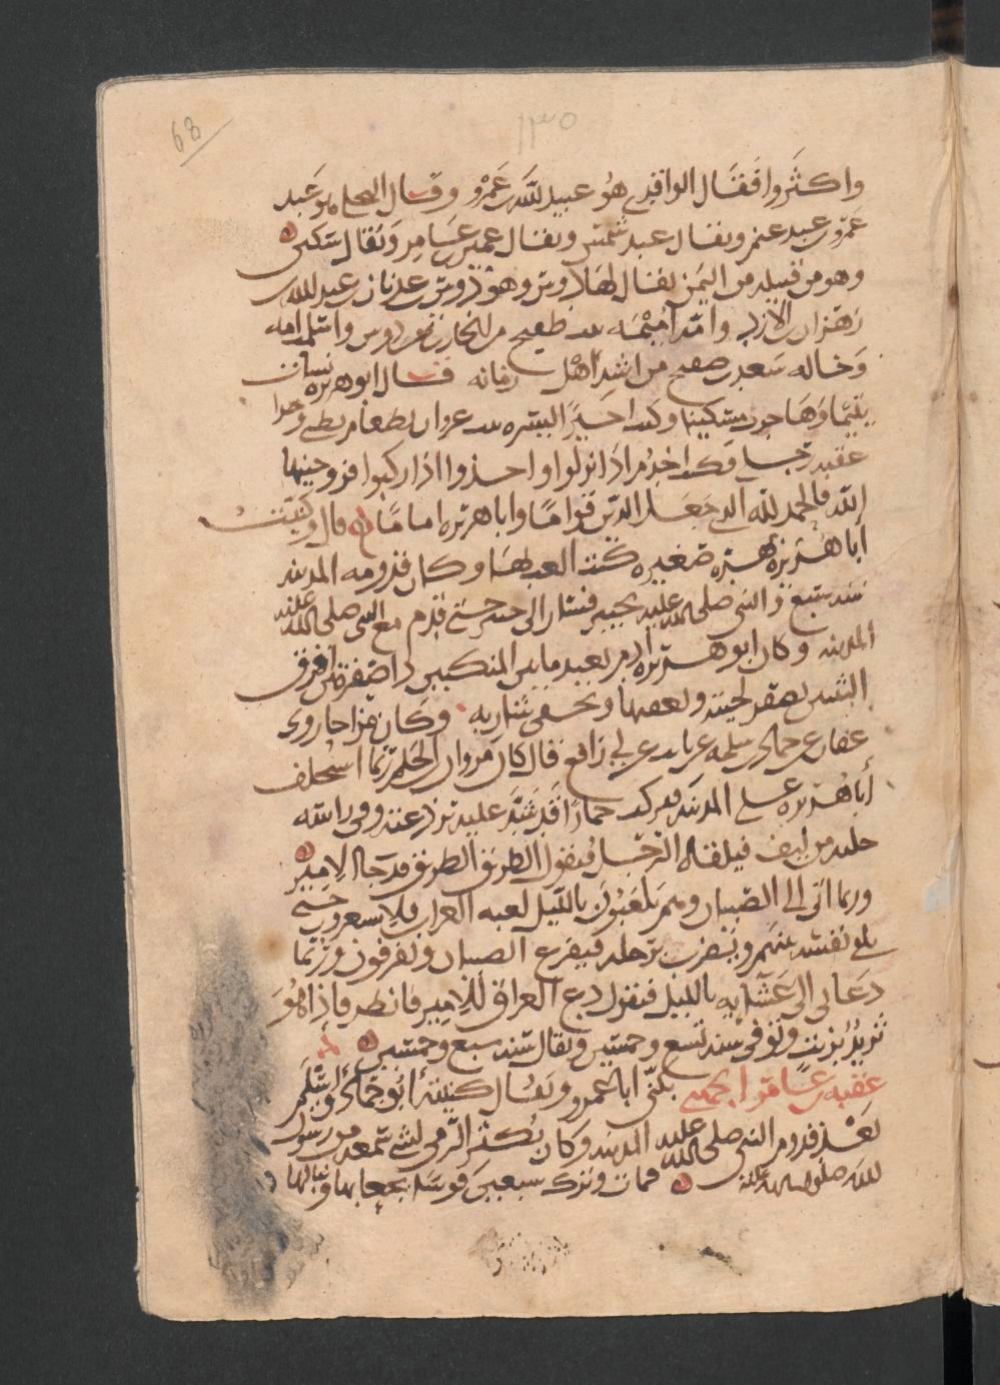 68
١٣٥
واكثروا فقال الواقدي هو عبيد الله بن عمرو وقال هو عبد
عمرو بن عبد غنم ويقال عبد شمس ويقال عمير بن عامر ويقال سكين
وهو من قبيلة من اليمن يقال لها دوس وهو دوس بن عدنان بن عبد الله بن
زهران بن الازد وامه اميمة بنت صفيح من الحارث بن دوس واسلمت امه
وخاله سعد بن صفيح من اشد اهل زمانه قال ابو هريره نشات
يتيما وهاجرت مسكينا وكنت اجيرا لبسرة بنت غزوان بطعام بطني
عقبة رجلي فكنت اخدم اذا نزلوا واحدوا اذا ركبوا فزوجنيها
الله فالحمد لله الذي جعل الدين قواما وابا هريره اماما قال وكنيت
ابا هريرة بهرة صغيره كنت العب بها وكان قدومه المدينة
سنة سبع والنبي صلى الله عليه بخيبر فسار الى خيبر حتى قدم مع النبي صلى الله عليه
المدينة وكان ابو هريره ادم بعيد ما بين المنكبين ذا ضفيرتين افرق
الثنيتين يصفر لحيته ويحفي شاربه وكان مزاحا روى
عفان عن حماد بن سلمه عن ثابت عن ابي رافع قال كان مروان بن الحكم ربما استخلف
أبا هريره على المدينة فيركب حمارا قد شد عليه برذعة وفي راسه
حلبة من ليف فيلقاه الرجل فيقول الطريق الطريق قد جا الامير
وربما اتى الى الصبيان وهم يلعبون بالليل لعبة الغراب فلا يشعرون حتى
يلقي نفسه بينهم ويضرب برجله فيفزع الصبيان ويفرقون وربما
دعاني الى عشايه بالليل فيقول دع العراق للامير فانظر فاذا هو
ثريد بزيت وتوفي سنة تسع وخمسين ويقال سنة سبع وخمسين
عقبه بن عامر الجهني يكنى ابا عمرو ويقال كنيته أبو حماد واسلم
بعد قدوم النبي صلى الله عليه المدينة وكان يكثر الرمي لشي سمعه من رسول
الله صلى الله عليه فمات وترك سبعين قوسا بجعابها ونبالها